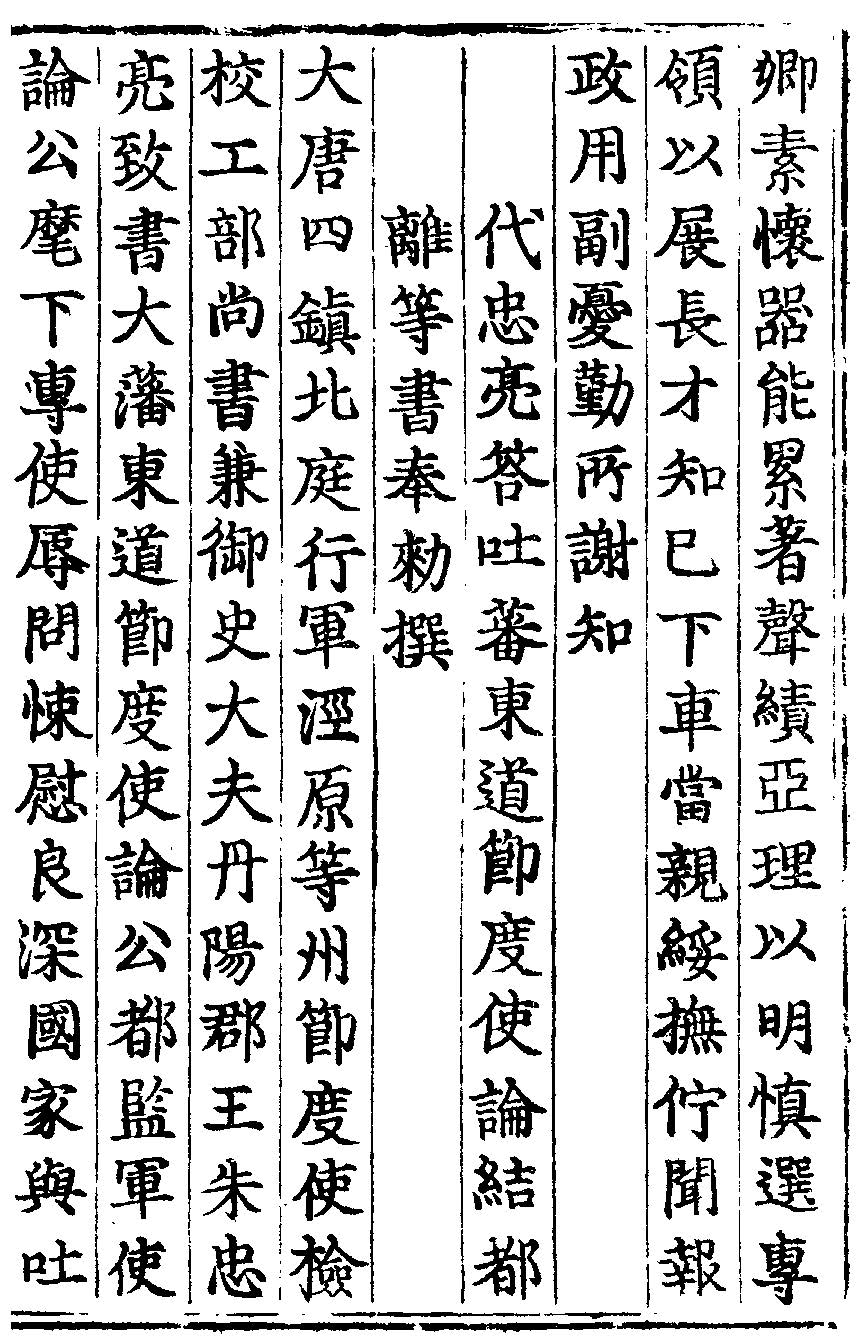 卿素懷器能累著聲績亞理以明慎選專
領以展長才知已下車當親綏撫佇聞報
政用副憂勤所謝知
代忠亮答吐蕃東道節度使論結都
離等書奉勑撰
大唐四鎮北庭行軍涇原等州節度使檢
校工部尚書兼御史大夫丹陽郡王朱忠
亮致書大蕃東道節度使論公都監軍使
論公麾下專使辱問悚慰良深國家與吐